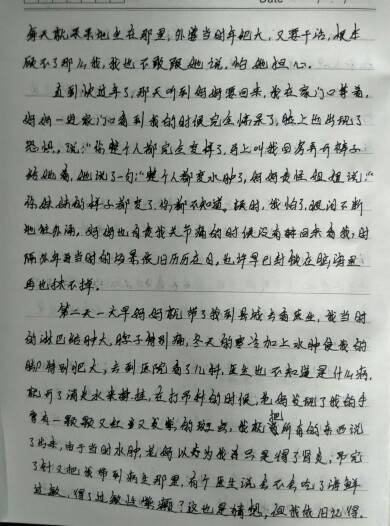 每天就呆呆地坐在那里,外婆当时年纪大,又要干活,根本
顾不了那么我,我也不敢跟她说,怕她担心。
直到快过年了,那天听到妈妈要回来,我在家门口等着,
妈妈一进家门口看到我的时候完全惊呆了,脸上也出现了
恐惧,说:“你整个人都完全变样了,马上叫我回房弄开裤子
给她看,她说了一句:“整个人都变水肿了,妈妈责怪姐姐说:“
你妹妹的样子都变了,你都不知道。顿时,我怕了,眼泪不断
地往外涌,妈妈也自责我关节痛的时候没有回来看我,时
隔多年再当时的场景依旧历历在目,也许早已封锁在脑海里
再也抹不掉。
第二天一大早妈妈就带了我到县城去看医生,我当时
的淋巴结肿大,脖子特别痛,冬天的寒冷加上水肿使我的
脚特别肥大,去到医院看了儿科,医生也不知道是什么病,
就开了消炎水来挂,在打吊针的时候,老妈发现了我的手
臂有一颗颗又红又发紫的斑点,我就把所有的东西说
了出来,由于当时水肿,老妈以为我许只是得了肾炎,吊完
了针又把我带到病主那里,有个医生说是不是吃了海鲜
过敏,得了过敏性紫癜?这也是猜想,但我依旧记得。
Date